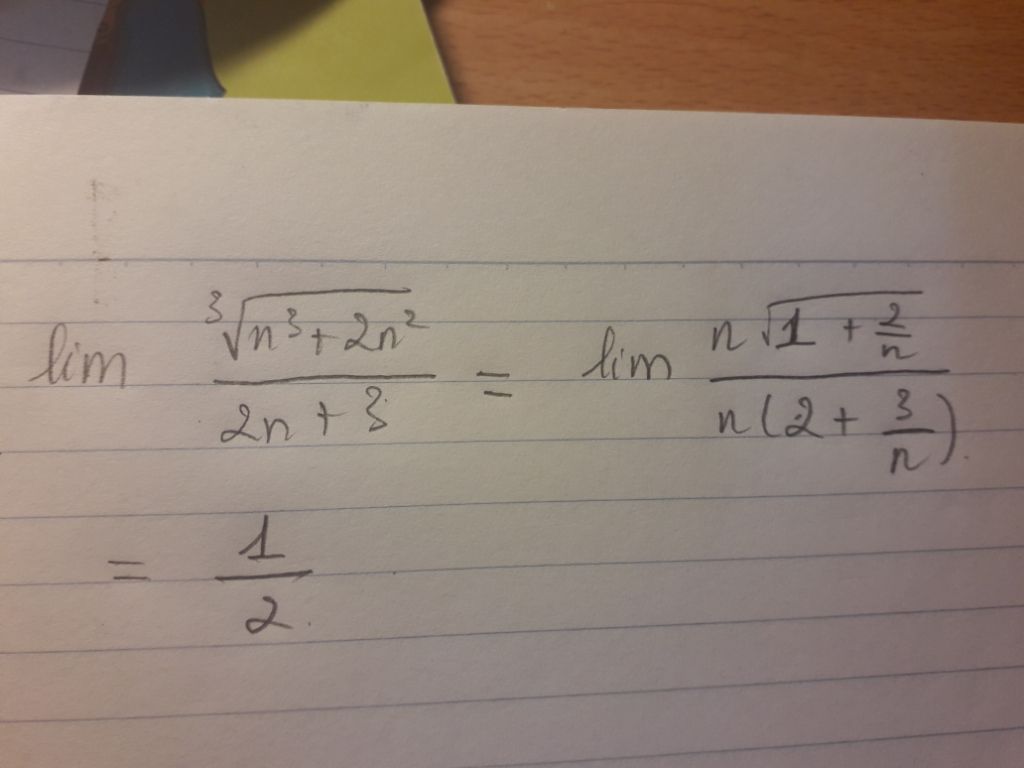 lim ∛(n³+2n²) / (2n+3) = lim n√(1 + 2/n) / n(2 + 3/n).
= 1/2.